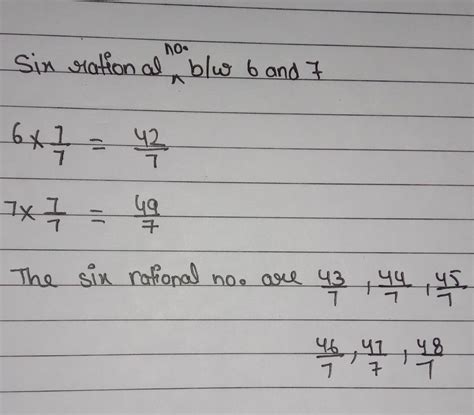 Six rational no. b/w 6 and 7
6 × 7/7 = 42/7
7 × 7/7 = 49/7
The six rational no. are 43/7, 44/7, 45/7
46/7, 47/7, 48/7